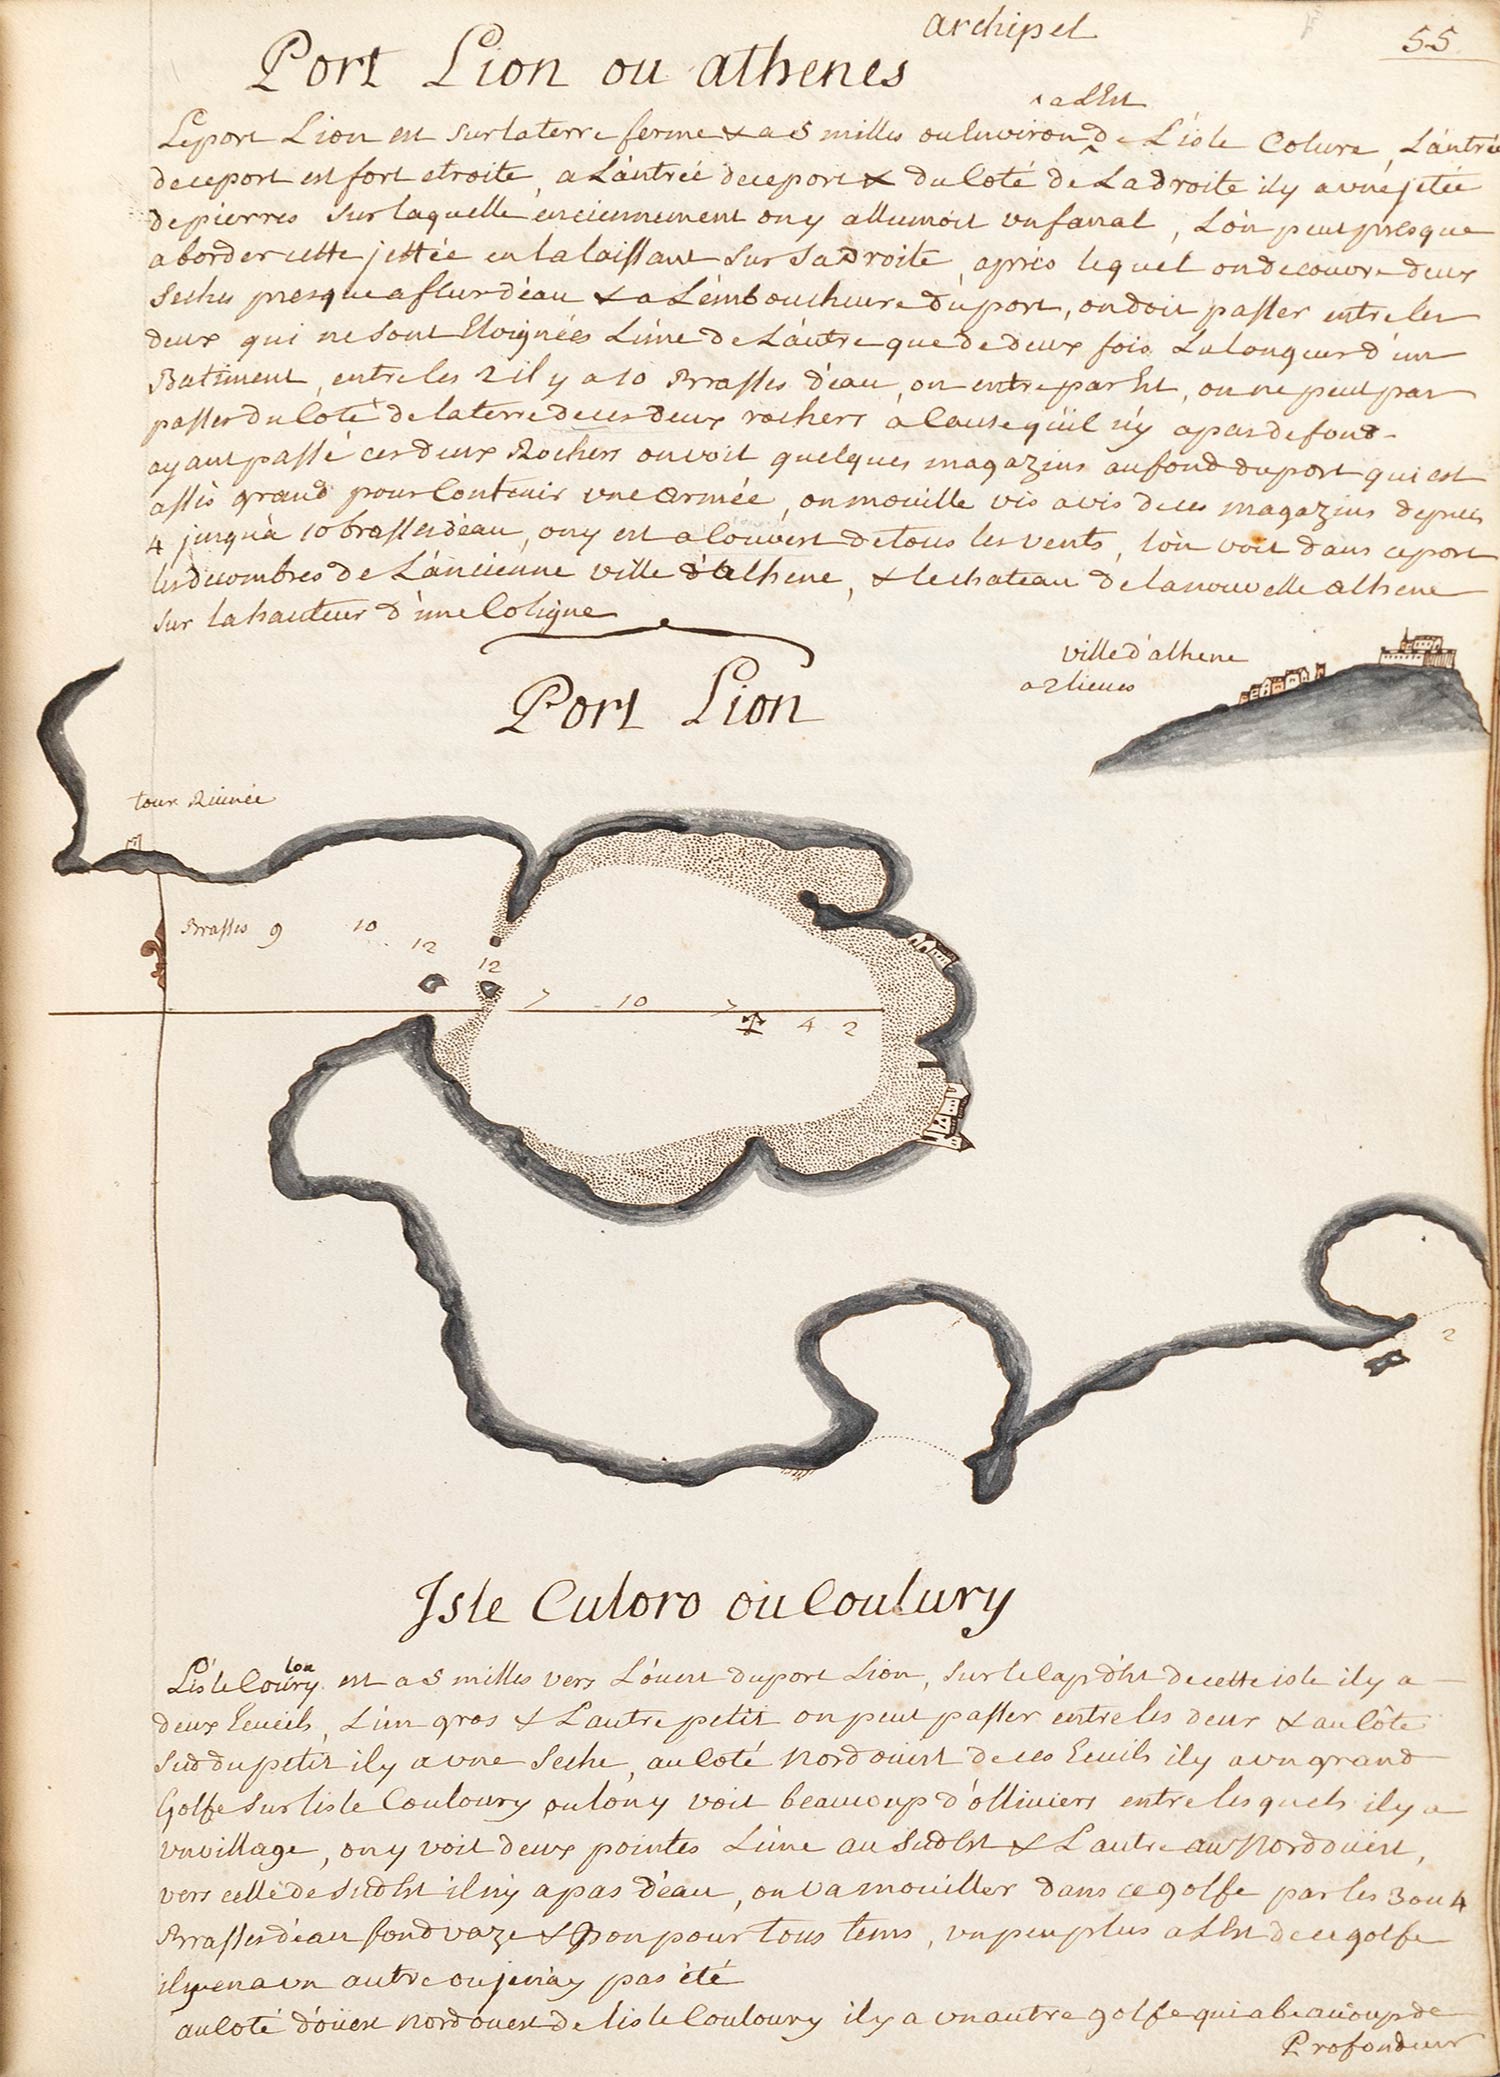 archipel
55
Port Lion ou athenes
a lEst
Le port Lion est sur la terre ferme & a 5 milles ou Environ de L'isle Colure, L'antrée
de ce port est fort etroite, a L'antrée de ce port & du Coté de La droite il y a une jetée
de pierres sur laquelle enciennement on y allumoit un fanal, L'on peut presque
aborder cette jettée en la laissant sur sa Droite, apres lequel on decouvre deux
Seches presque a fleur d'eau & a L'embouchure du port, on doit passer entre les
deux qui ne sont Eloignées L'une de L'autre que de deux fois La longueur d'un
Batiment, entre les 2 il y a 10 Brasses d'eau, on entre par Est, on ne peut pas
passer du Coté de la terre de ces deux rochers a Cause qu'il n'y a pas de fond
ayant passé ces deux Rochers on voit quelques magazins au fond du port qui est
assés grand pour Contenir une armée, on mouille vis a vis de ces magazins depuis
4 jusqu'a 10 brasses d'eau, on y est a Couvert de tous les vents, l'on voit dans ce port
les decombres de L'ancienne ville d'athene, & le chateau de la nouvelle athene
sur la hauteur d'une Coligne
ville d'athene
a 2 lieues
Port Lion
tour Ruinée
Brasses 9 10
12
12
7 10 7
4 2
2
Isle Culoro ou Coulury
L'isle Couloury est a 5 milles vers L'ouest du port Lion, sur le Cap d'Est de cette isle il y a
lou
deux Ecueils, L'un gros & L'autre petit on peut passer entre les deux & au Côté
Sud du petit il y a une Seche, au Coté Nord ouest de ces Ecuils il y a un grand
Golfe sur lisle Couloury ou lon y voit beaucoup d'olliviers entre lesquels il y a
un village, on y voit deux pointes L'une au Sud Est & L'autre au Nord ouest,
vers celle de Sud Est il n'y a pas d'eau, on va mouiller dans ce golfe par les 3 ou 4
Brasses d'eau fond vaze & Bon pour tous tems, un peu plus a l'Est de ce golfe
il y en a un autre ou je n'ay pas été
au Coté d'ouest Nord ouest de lisle Couloury il y a un autre golfe qui a beaucoup de
Profondeur